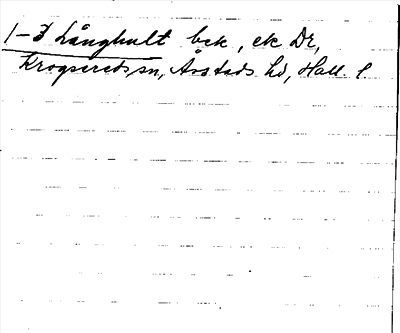 1-3 Långhult bek, ek Dr,
Krogsereds sn, Årstads hd, Hall. l